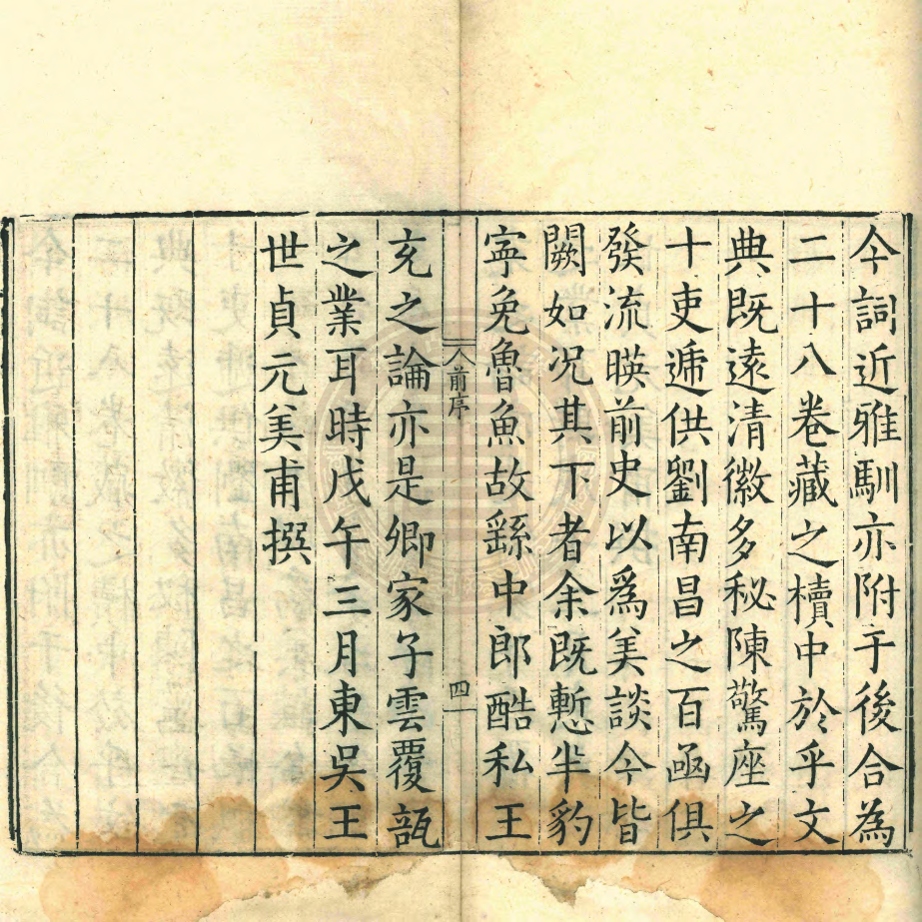 今詞近雅馴亦附于後合為
二十八卷藏之櫝中於乎文
典既遠清徽多秘陳驚座之
十吏遞供劉南昌之百函俱
發流暎前史以為美談今皆
闕如况其下者余既慙半豹
寜免魯魚故繇中郎酷私王
前序
四
充之論亦是卿家子雲覆瓿
之業耳時戊午三月東吳王
世貞元美甫撰